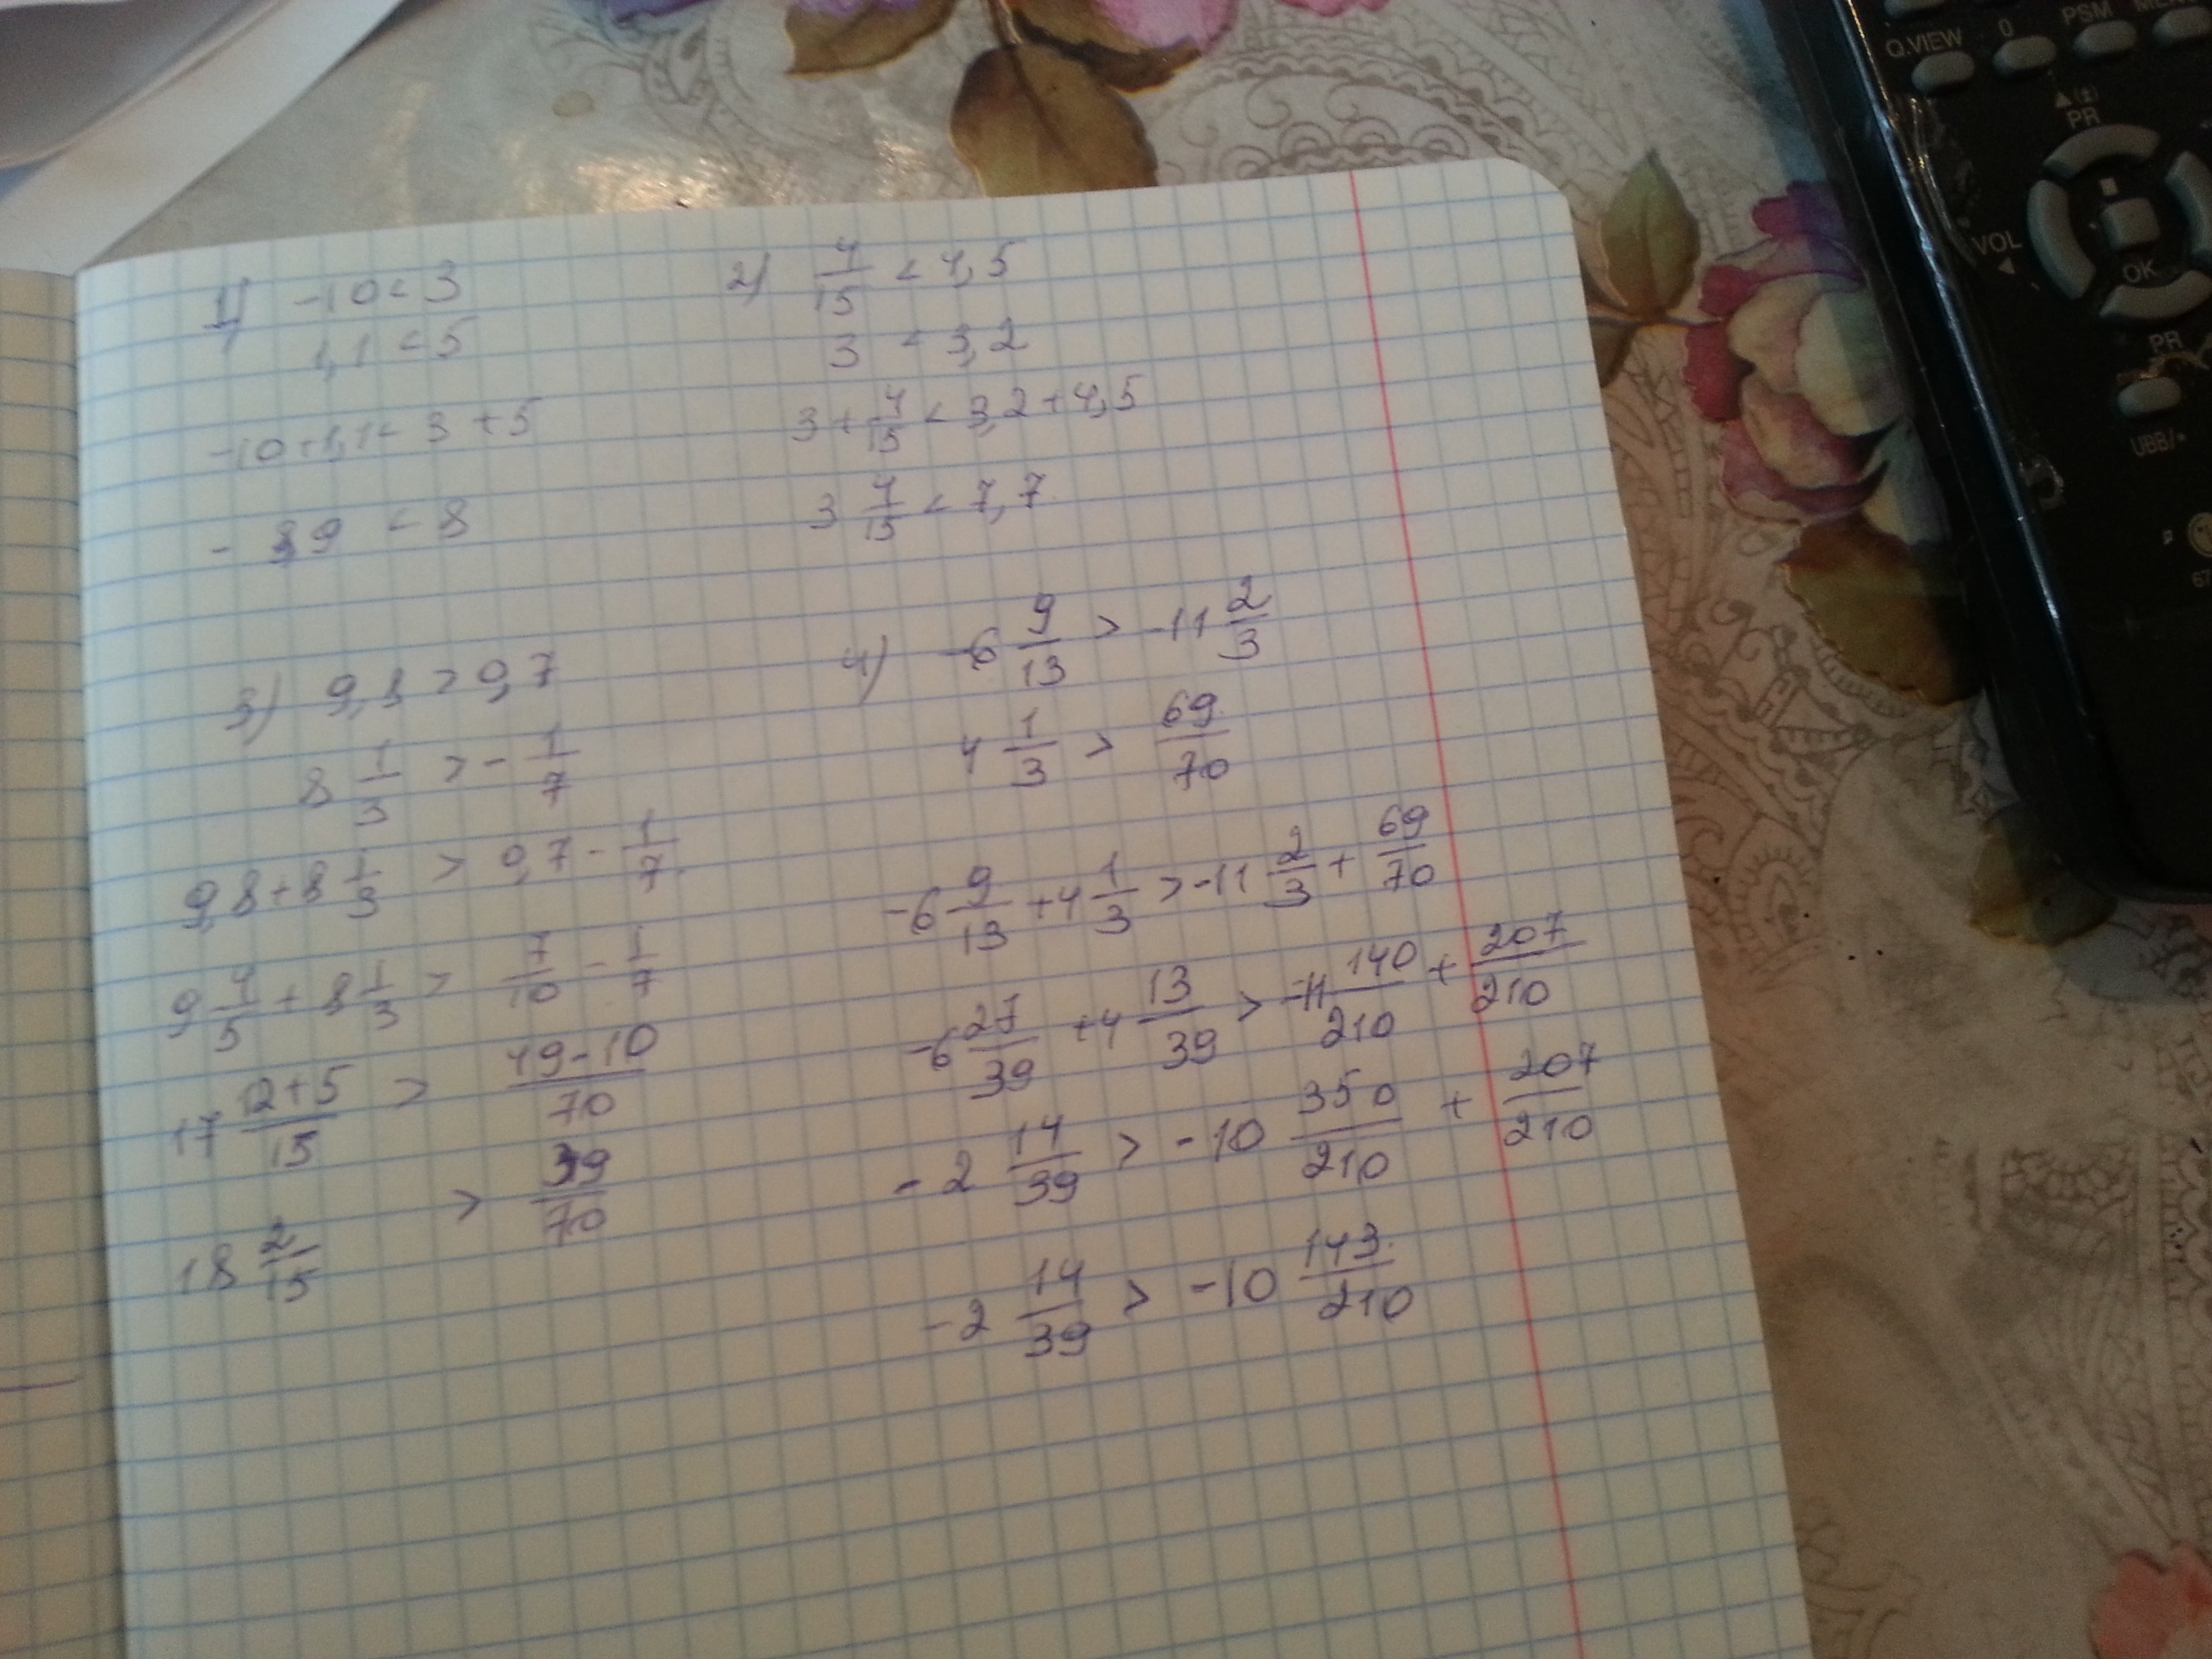 1) -10 < 3
1,1 < 5
-10+1,1 < 3+5
- 8,9 < 8
2) 4/15 < 4,5
3 < 3,2
3 + 4/15 < 3,2+4,5
3 4/15 < 7,7
3) 9,8 > 0,7
8 1/3 > - 1/7
9,8+8 1/3 > 0,7 - 1/7
9 4/5 + 8 1/3 > 7/10 - 1/7
17 12+5/15 > 49-10/70
18 2/15 > 39/70
4) -6 9/13 > -11 2/3
4 1/3 > 69/70
-6 9/13 + 4 1/3 > -11 2/3 + 69/70
-6 27/39 + 4 13/39 > -11 140/210 + 207/210
- 2 14/39 > -10 350/210 + 207/210
-2 14/39 > -10 143/210
Q.VIEW 0 PSM
PR
VOL
OK
PR